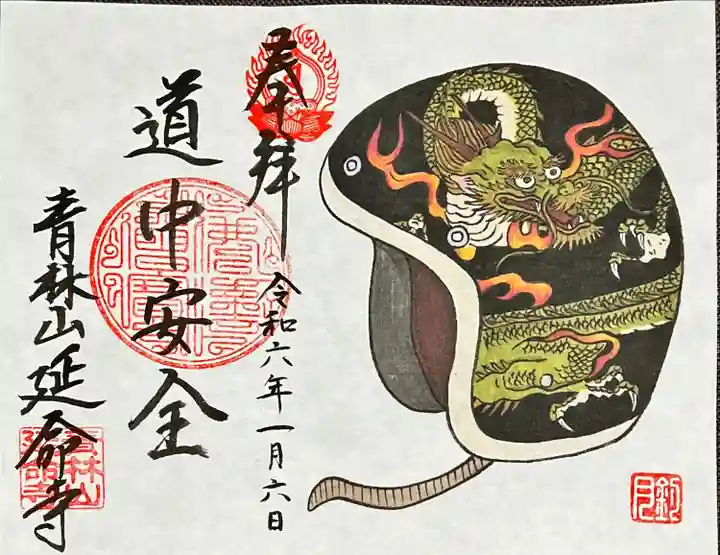 奉拝
令和六年一月六日
道中安全
青林山延命寺